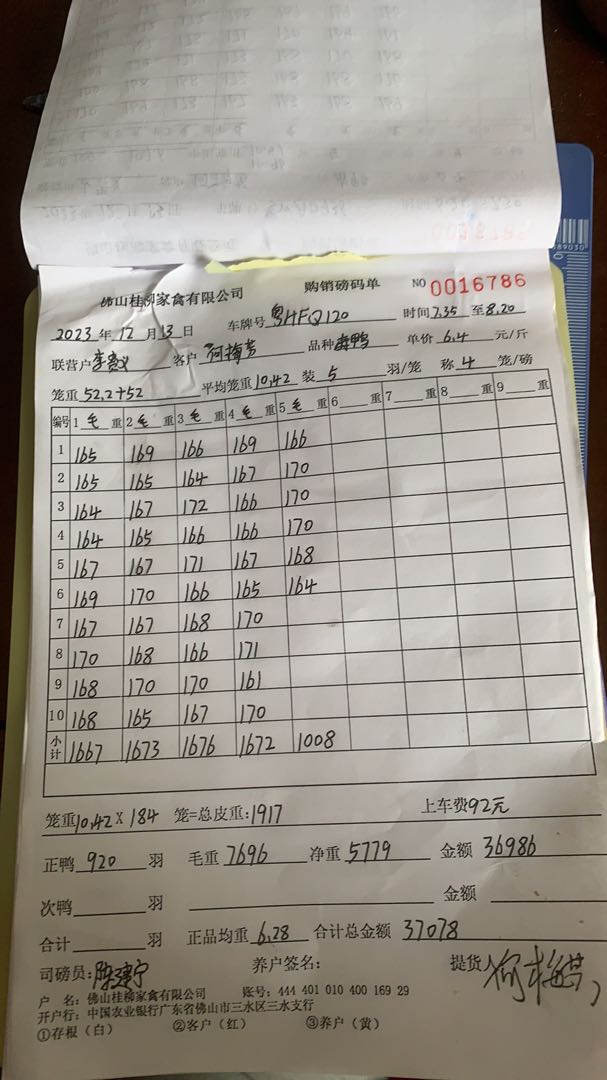 佛山桂柳家禽有限公司 购销磅码单 NO 0016786
2023年12月13日 车牌号粤HFQ120 时间7.35至8.20
联营户 客户何梅芳 品种 鸭 单价6.4元/斤
笼重52.2+52 平均笼重10.42装5羽/笼 称4笼/磅
编号 1毛重 2毛重 3毛重 4毛重 5毛重 6重 7重 8重 9重
1 165 169 166 169 166
2 165 165 164 167 170
3 164 167 172 166 170
4 164 165 166 166 170
5 167 167 171 167 168
6 169 170 166 165 164
7 167 167 168 170
8 170 168 166 171
9 168 170 170 161
10 168 165 167 170
小计 1667 1673 1676 1672 1008
笼重10.42X184笼=总皮重:1917 上车费92元
正鸭920羽 毛重7696净重5779 金额36986
次鸭羽 金额
合计羽 正品均重6.28 合计总金额37078
司磅员:陈建宁 养户签名: 提货人何梅芳
户 名:佛山桂柳家禽有限公司 账号:444 401 010 400 169 29
开户行:中国农业银行广东省佛山市三水区三水支行
①存根(白) ②客户(红) ③养户(黄)